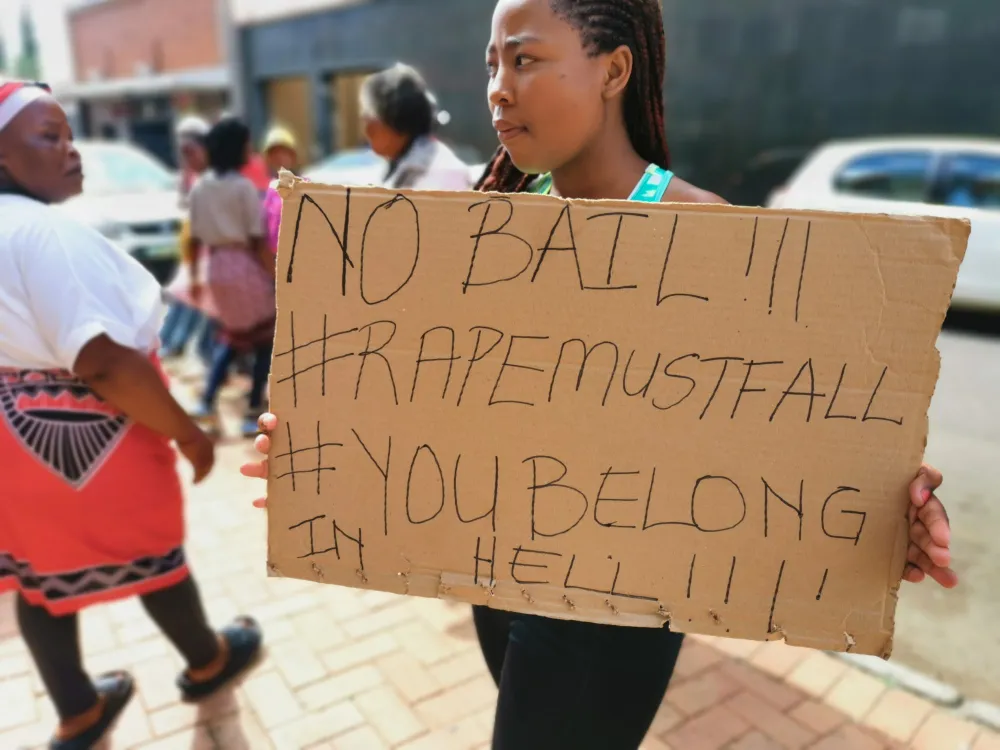 NO BAIL!!!
#RAPEMUSTFALL
#YOUBELONG
IN HELL!!!!!